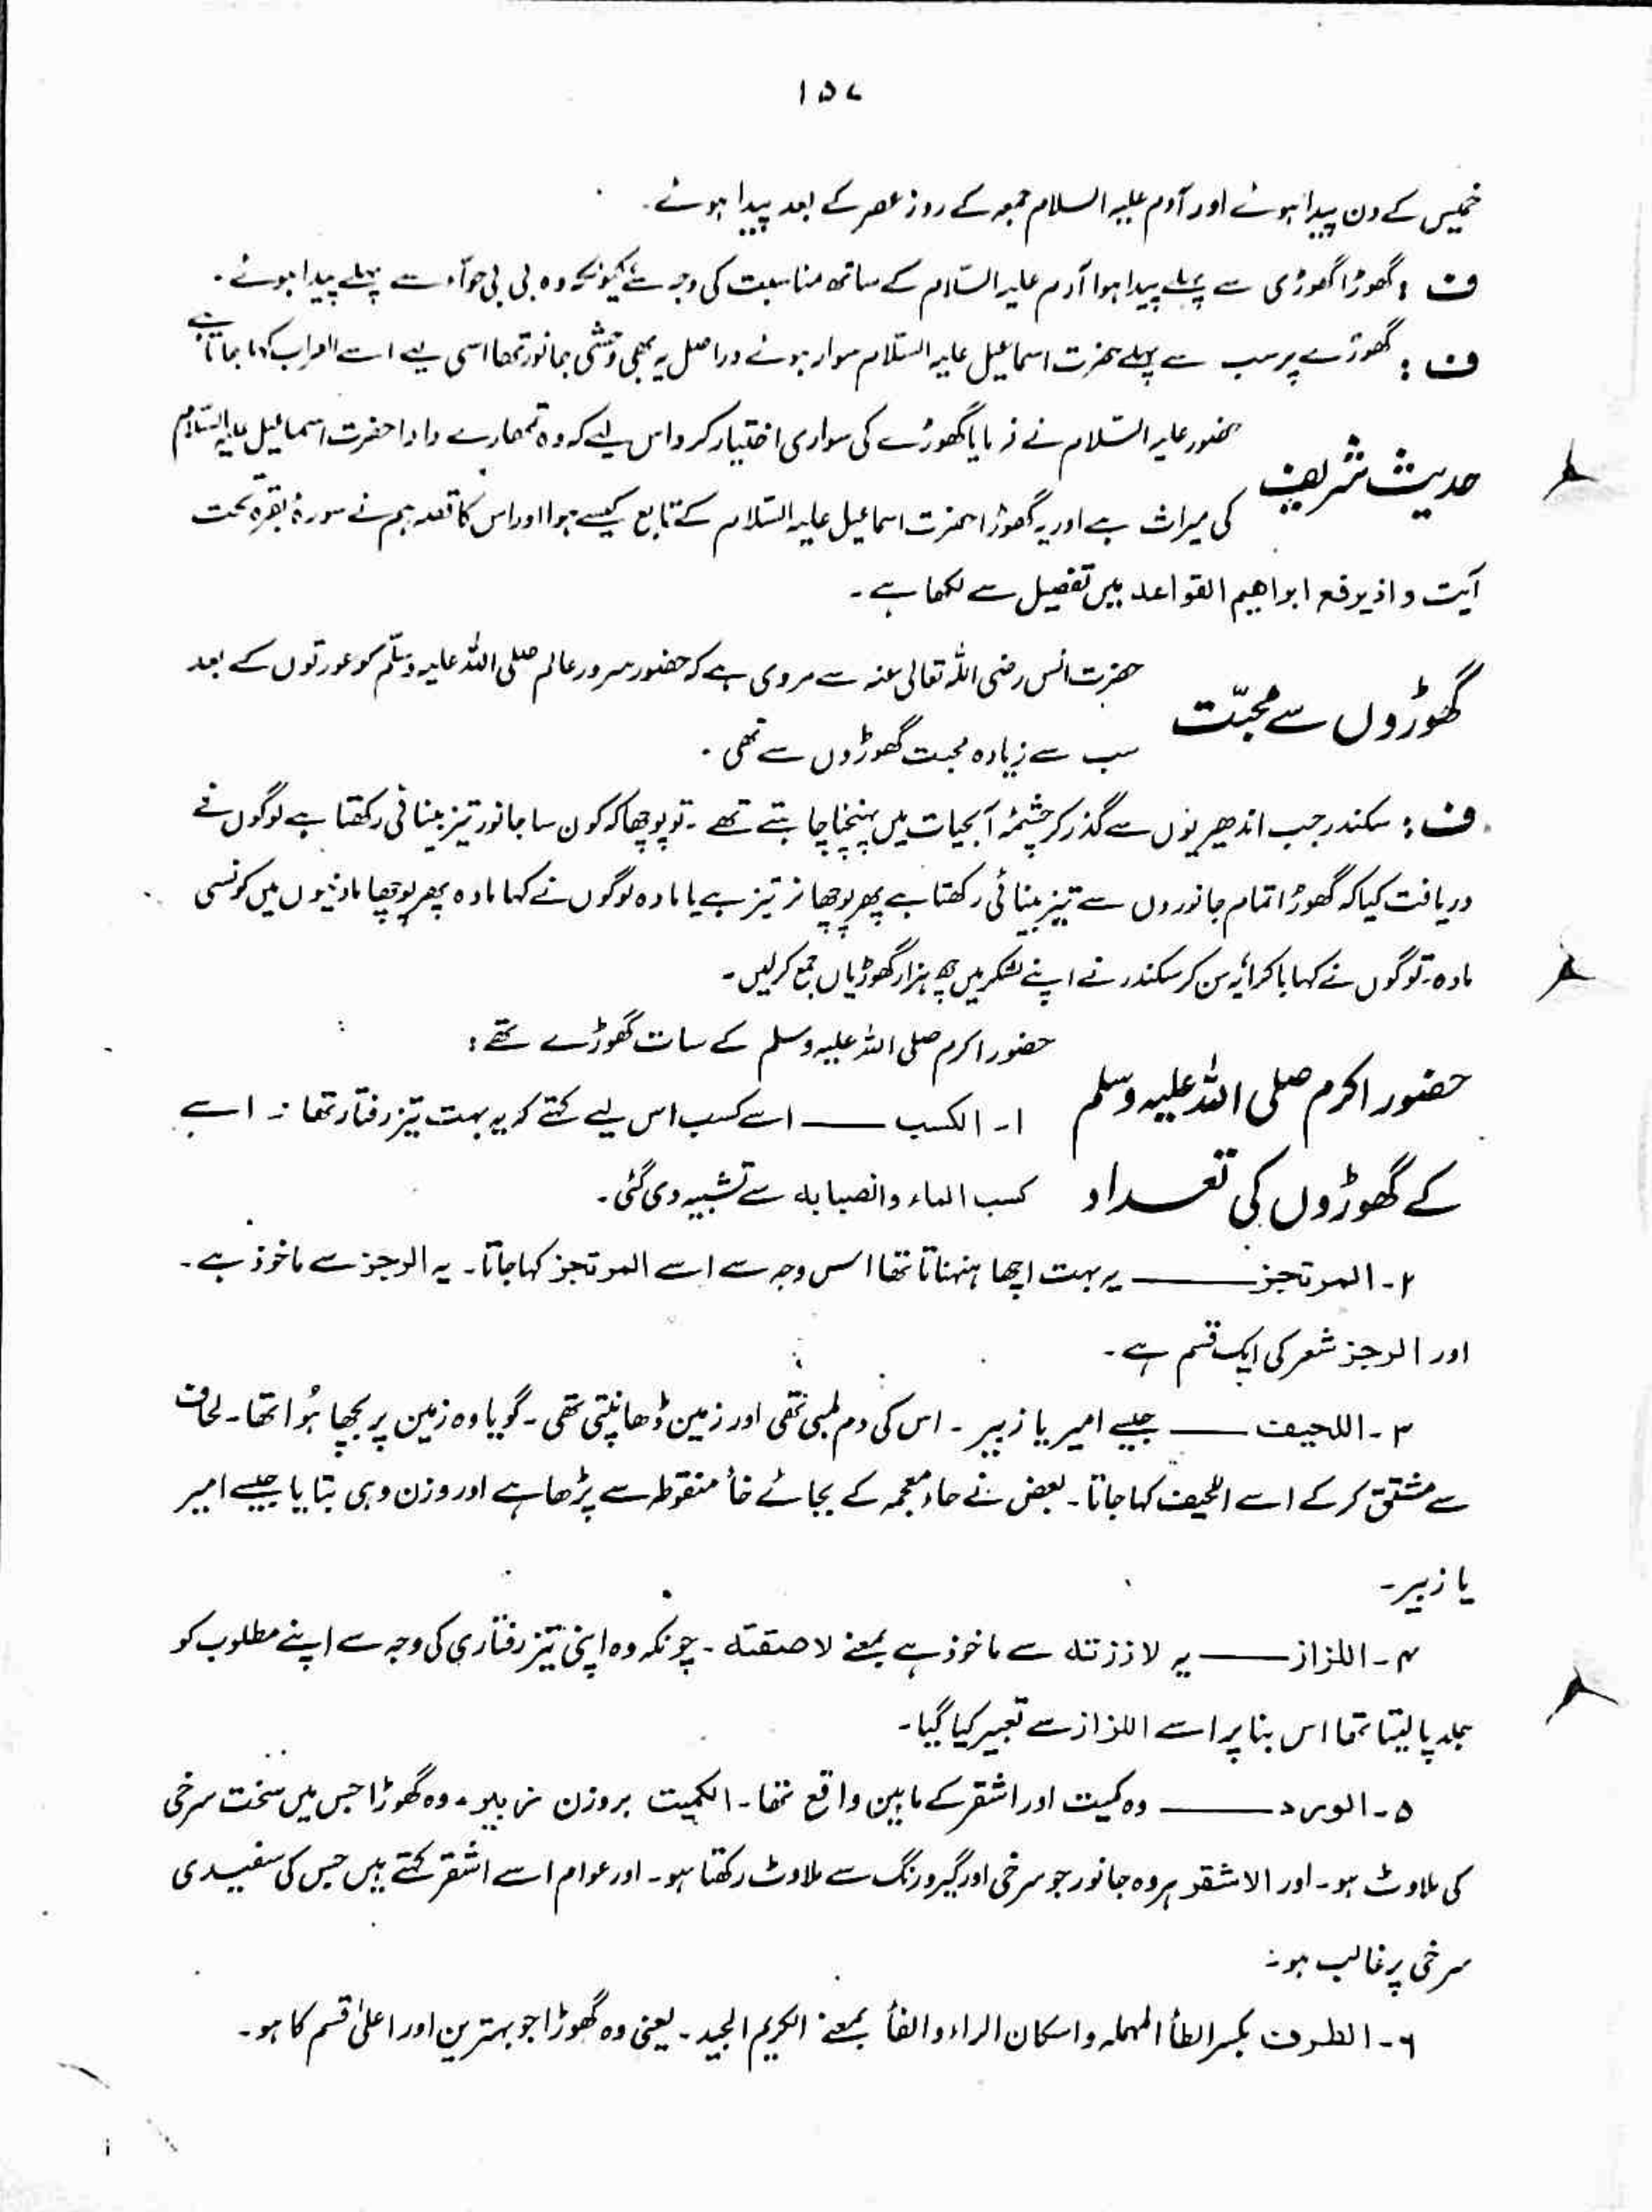 ۱۵۷
خمیس کے دن پیدا ہوئے اور آدم علیہ السلام جمعہ کے روز عصر کے بعد پیدا ہوئے۔
ف : گھوڑا گھوڑی سے پہلے پیدا ہوا آدم علیہ السّلام کے ساتھ مناسبت کی وجہ سے کیونکہ وہ بی بی حوّاء سے پہلے پیدا ہوئے۔
ف : گھوڑے پر سب سے پہلے حضرت اسماعیل علیہ السّلام سوار ہوئے دراصل یہ بھی وحشی جانور تھا اسی لیے اسے العراب کہا جاتا ہے
حدیث شریف
حضور علیہ السّلام نے فرمایا گھوڑے کی سواری اختیار کرو اس لیے کہ وہ تمھارے دادا حضرت اسماعیل علیہ السّلام
کی میراث ہے اور یہ گھوڑا حضرت اسماعیل علیہ السّلام کے تابع کیسے ہوا اور اس کا قصہ ہم نے سورۂ بقرہ تحت
آیت و اذ یرفع ابراھیم القواعد میں تفصیل سے لکھا ہے۔
گھوڑوں سے محبّت
حضرت انس رضی اللہ تعالیٰ عنہ سے مروی ہے کہ حضور سرور عالم صلی اللہ علیہ وسلّم کو عورتوں کے بعد
سب سے زیادہ محبت گھوڑوں سے تھی۔
ف : سکندر جب اندھیریوں سے گذر کر چشمۂ آبحیات میں پہنچنا چاہتے تھے۔ تو پوچھا کہ کون سا جانور تیز بینائی رکھتا ہے لوگوں نے
دریافت کیا کہ گھوڑا تمام جانوروں سے تیز بینائی رکھتا ہے پھر پوچھا نر تیز ہے یا مادہ لوگوں نے کہا مادہ پھر پوچھا مادنیوں میں کونسی
مادہ، تو لوگوں نے کہا باکرا یہ سن کر سکندر نے اپنے لشکر میں چھ ہزار گھوڑیاں جمع کرلیں۔
حضور اکرم صلی اللہ علیہ وسلم
کے گھوڑوں کی تعداد
حضور اکرم صلی اللہ علیہ وسلم کے سات گھوڑے تھے :
۱۔ الکسب ــــــ اسے کسب اس لیے کہتے کہ یہ بہت تیز رفتار تھا۔ اسے
کسب الماء وانصبابہ سے تشبیہ دی گئی۔
۲۔ المرتجز ــــــ یہ بہت اچھا ہنہناتا تھا اس وجہ سے اسے المرتجز کہا جاتا۔ یہ الرجز سے ماخوذ ہے۔
اور الرجز شعر کی ایک قسم ہے۔
۳۔ اللحیف ــــــ جیسے امیر یا زبیر۔ اس کی دم لمبی تھی اور زمین ڈھانپتی تھی۔ گویا وہ زمین پر بچھا ہُوا تھا۔ لحاف
سے مشتق کر کے اسے اللحیف کہا جاتا۔ بعض نے حاء معجمہ کے بجائے خأ منقوطہ سے پڑھا ہے اور وزن وہی بتایا جیسے امیر
یا زبیر۔
۴۔ اللزاز ــــــ یہ لاززتہ سے ماخوذ ہے بمعنے لاصقتہ۔ چونکہ وہ اپنی تیز رفتاری کی وجہ سے اپنے مطلوب کو
جلد پا لیتا تھا اس بنا پر اسے اللزاز سے تعبیر کیا گیا۔
۵۔ الورد ــــــ وہ کمیت اور اشقر کے مابین واقع تھا۔ الکمیت بروزن زبیر۔ وہ گھوڑا جس میں سخت سرخی
کی ملاوٹ ہو۔ اور الاشقر ہر وہ جانور جو سرخی اور گیرو رنگ سے ملاوٹ رکھتا ہو۔ اور عوام اسے اشقر کہتے ہیں جس کی سفیدی
سرخی پر غالب ہو۔
۶۔ الطرف بکسر الطأ المہملہ و اسکان الراء و الفأ بمعنے الکریم الجید۔ یعنی وہ گھوڑا جو بہترین اور اعلیٰ قسم کا ہو۔